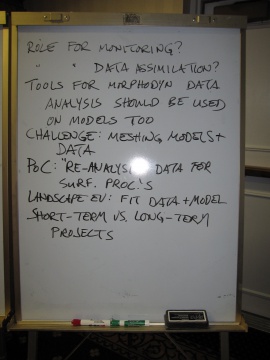 ROLE FOR MONITORING?
" " DATA ASSIMILATION?
TOOLS FOR MORPHODYN DATA
ANALYSIS SHOULD BE USED
ON MODELS TOO
CHALLENGE: MESHING MODELS+
DATA
POC: "RE-ANALYSIS" DATA FOR
SURF. PROC.'S
LANDSCAPE EV: FIT DATA+MODEL
SHORT-TERM VS. LONG-TERM
PROJECTS